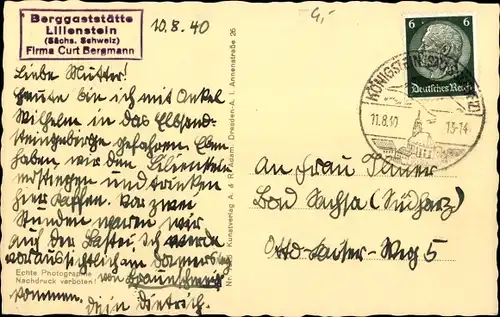 Berggaststätte
Lilienstein
(Sächs. Schweiz)
Firma Curt Bergmann
10.8.40
4,-
Liebe Mutter!
Heute bin ich mit Onkel
Wilhelm in das Elbsand-
steingebirge gefahren. Eben
haben wir den Lilienstein
erstiegen und trinken
hier Kaffee. Vor zwei
Stunden waren wir
auf der Bastei. Ich werde
voraussichtlich am Donnerstag
von Braunschweig
kommen.
Dein Dietrich.
Echte Photographie
Nachdruck verboten!
Kunstverlag A. & R. Adam, Dresden-A. 1, Annenstraße 26
6 6
Deutsches Reich
KÖNIGSTEIN
11.8.40
13-14
An Frau
Bad Sachsa (Südharz)
Otto-Kaiser-Weg 5